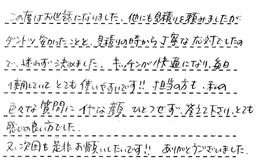 この度はお世話になりました。他にも見積りを頼みましたが
ダントツ安かったことと、見積りの時から丁寧な対応でしたの
で、迷わず決めました。キッチンが快適になり、毎日
使用していて とても使いやすいです!! 担当の方も、私の
色々な質問に イヤな顔 ひとつせず、答えて下さり、とても
感じの良い方でした。
又、次回も是非お願いしたいです!! ありがとうございました。